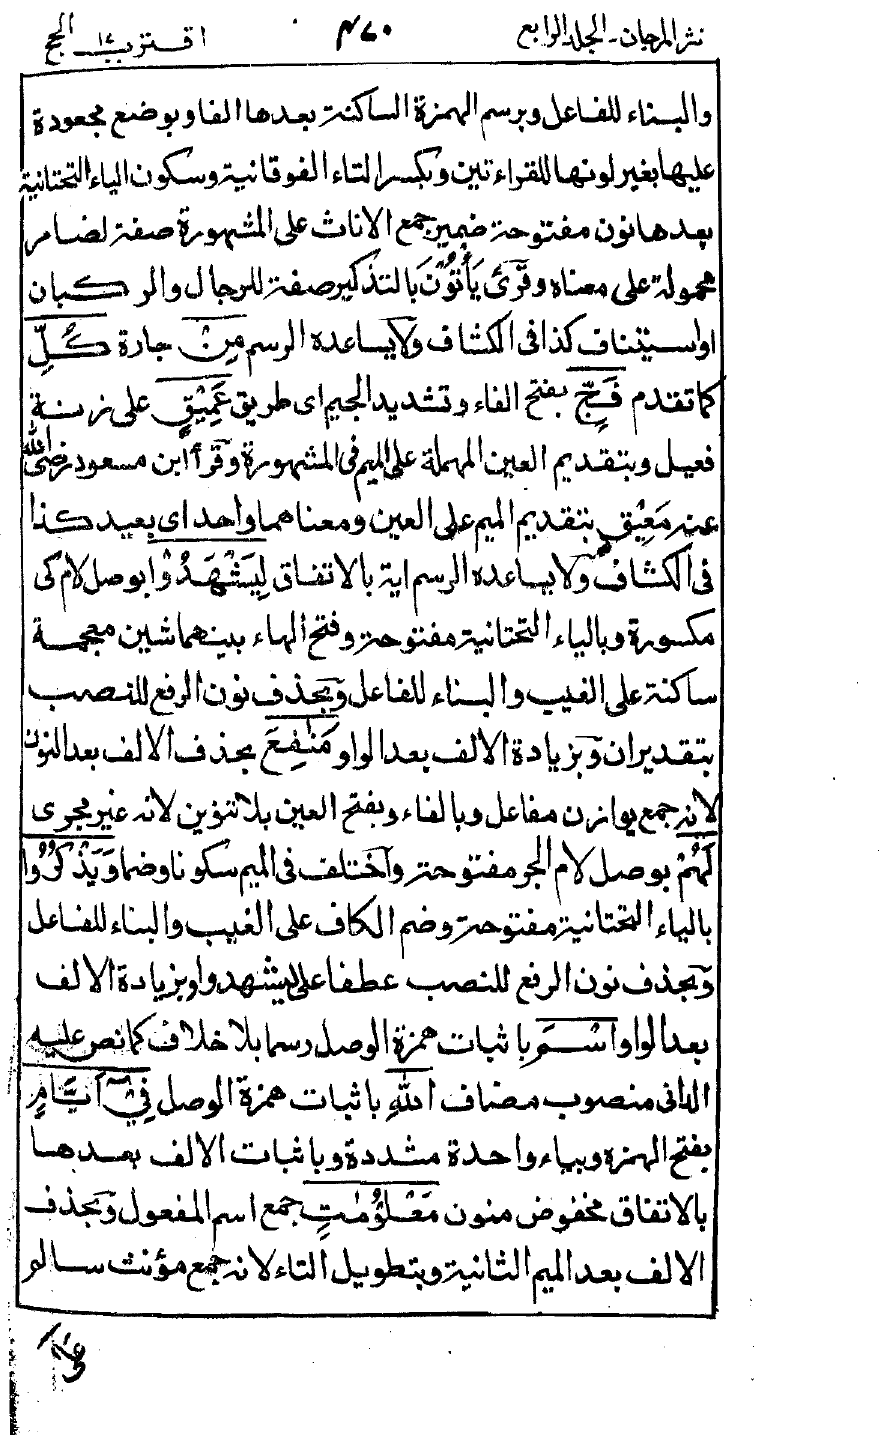 نثر المرجان۔ الجلد الرابع ٤٧٠ اقترب ١٧ الحج
والبناء للفاعل وبرسم الهمزة الساكنة بعدها الفا وبوضع مجعودة
عليها بغير لونها للقراءتين وبكسر التاء الفوقانية وسكون الياء التحتانية
بعدها نون مفتوحة ضمير جمع الاناث على المشهورة صفة لضامر
محمولة على معناه وقرئ يَأْتُوْنَ بالتذكير صفة للرجال والركبان
او استيناف كذا فى الكشاف ولا يساعده الرسم مِنْ جارة كُلِّ
كما تقدم فَجٍّ بفتح الفاء وتشديد الجيم اى طريق عَمِيْقٍ على زنة
فعيل وبتقديم العين المهملة على الميم فى المشهورة وقرأ ابن مسعود رضى الله
عنه مَعِيْقٍ بتقديم الميم على العين ومعناهما واحد اى بعيد كذا
فى الكشاف ولا يساعده الرسم اية بالاتفاق لِيَشْهَدُوْا بوصل لام كى
مكسورة وبالياء التحتانية مفتوحة وفتح الهاء بينهما شين معجمة
ساكنة على الغيب والبناء للفاعل وبحذف نون الرفع للنصب
بتقدير ان وبزيادة الالف بعد الواو مَنٰفِعَ بحذف الالف بعد النون
لانه جمع يوازن مفاعل وبالفاء وبفتح العين بلا تنوين لانه غير مجرى
لَهُمْ بوصل لام الجر مفتوحة واختلف فى الميم سكونا وضما وَيَذْكُرُوْا
بالياء التحتانية مفتوحة وضم الكاف على الغيب والبناء للفاعل
وبحذف نون الرفع للنصب عطفا على ليشهدوا وبزيادة الالف
بعد الواو اسْمَ باثبات همزة الوصل رسما بلا خلاف كما نص عليه
الدانى منصوب مضاف اللهِ باثبات همزة الوصل فِيْٓ اَيَّامٍ
بفتح الهمزة وبياء واحدة مشددة وباثبات الالف بعدها
بالاتفاق مخفوض منون مَعْلُوْمٰتٍ جمع اسم المفعول وبحذف
الالف بعد الميم الثانية وبتطويل التاء لانه جمع مؤنث سالم
على